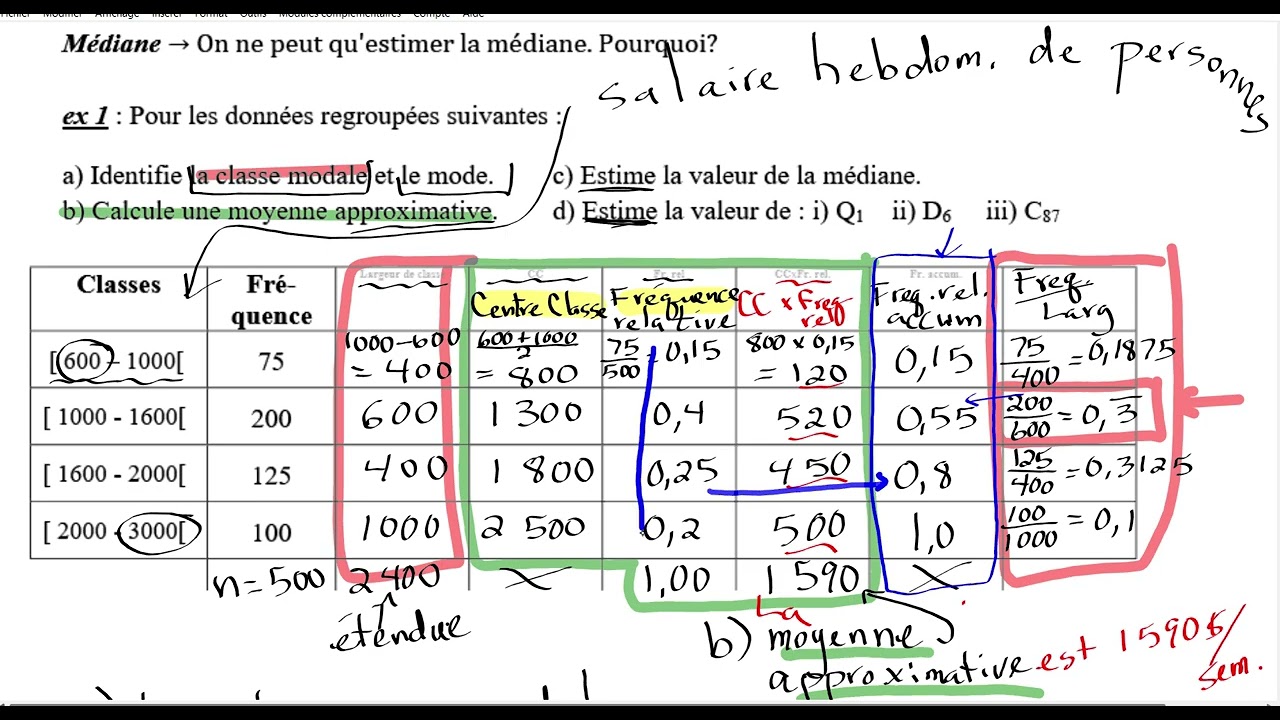 Fichier Modifier Affichage Insérer Format Outils Modules complémentaires Compte Aide
Médiane → On ne peut qu'estimer la médiane. Pourquoi?
salaire hebdom. de personnes
ex 1 : Pour les données regroupées suivantes :
a) Identifie la classe modale et le mode. c) Estime la valeur de la médiane.
b) Calcule une moyenne approximative. d) Estime la valeur de : i) Q1 ii) D6 iii) C87
Classes Fré- Largeur de classe CC Fr. rel CCxFr. rel. Fr. accum. Freq.
quence Centre Classe Fréquence relative CC x Freq rel Freq. rel. accum Larg
[ 600 - 1000[ 75 1000-600 = 400 600+1000/2 = 800 75/500 = 0,15 800 x 0,15 = 120 0,15 75/400 = 0,1875
[ 1000 - 1600[ 200 600 1 300 0,4 520 0,55 200/600 = 0,3̅
[ 1600 - 2000[ 125 400 1 800 0,25 450 0,8 125/400 = 0,3125
[ 2000 - 3000[ 100 1000 2 500 0,2 500 1,0 100/1000 = 0,1
n = 500 2 400 1,00 1 590
étendue
b) La moyenne
approximative est 1590$/sem.